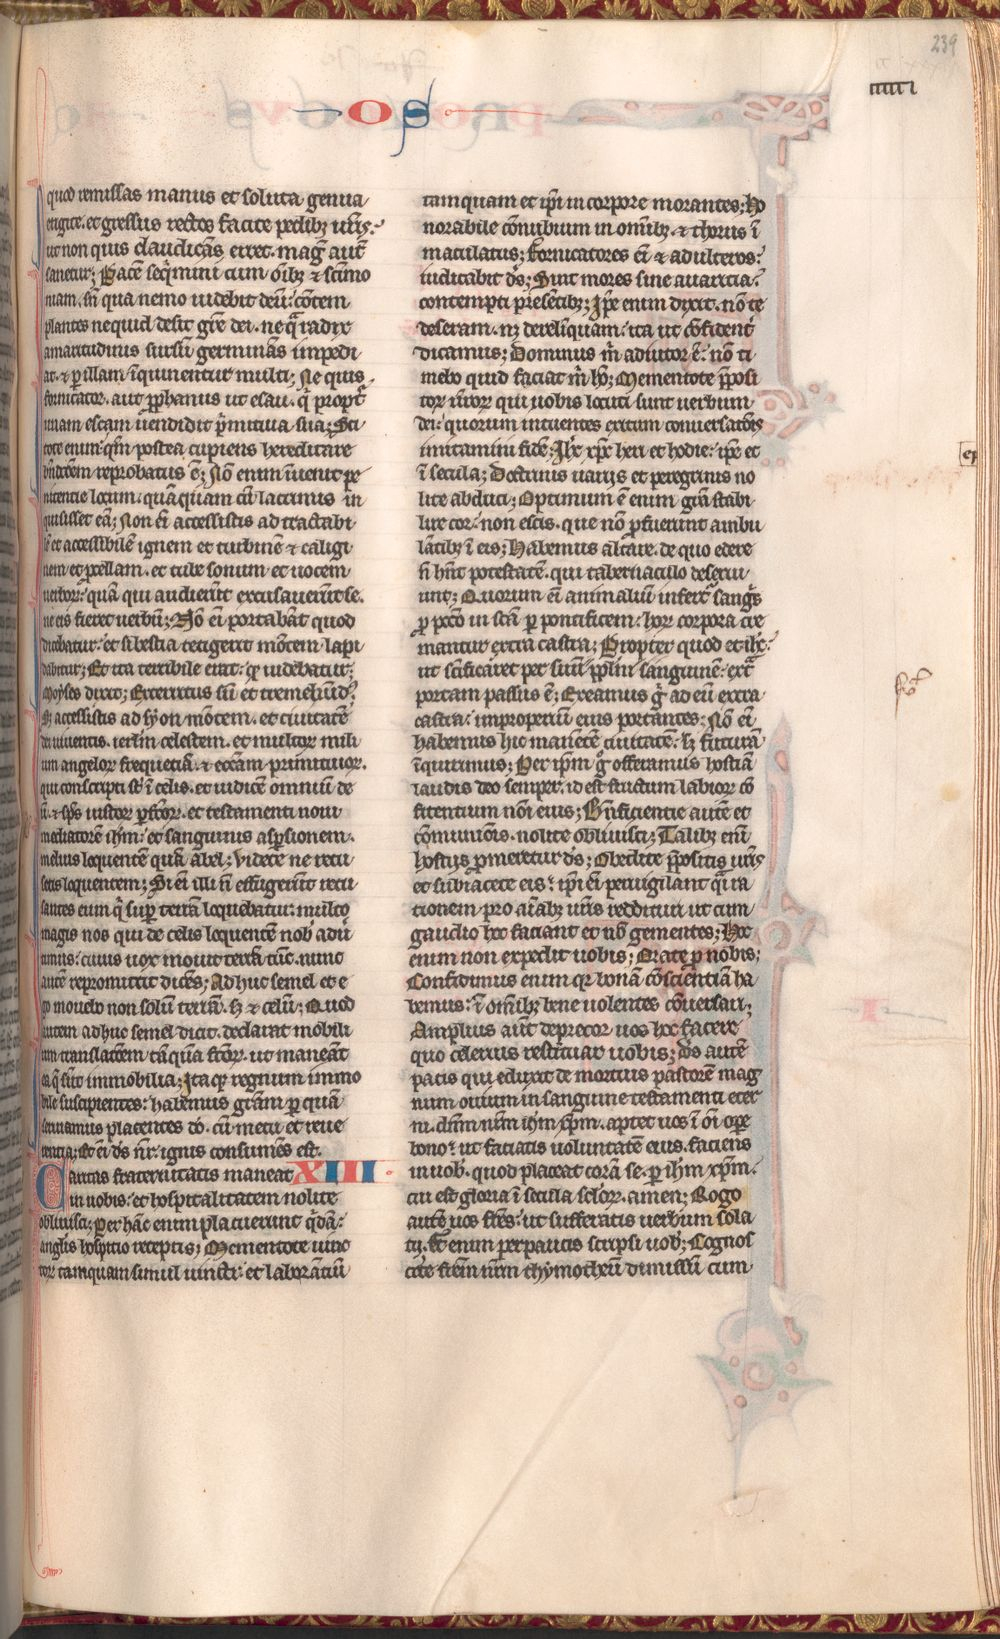 239
OS
quod remissas manus et soluta genua
erigite. et gressus rectos facite pedibꝫ ur̄is.
ut non quis claudicās erret. mag̾ aut̄
sanetur; Pacē seq̄mini cum oīꝫ ⁊ sc̄imo
niam. sn̄ qua nemo uidebit deū. cōtem
plantes nequid desit gr̄e dei. ne q̄ radix
amaritudinis sursū germinās impedi
at. ⁊ ꝑ illam īquinentur multi; Ne quis
fornicator. aut ꝓphanus ut esau. q̄ propt̄
unam escam uendidit p̄mitiua sua; Sci
tote enim. qm̄ postea cupiens hereditare
bn̄dictōem reprobatus ē; Nō enim īuenit pe
nitentie locum. quāquam cū lacrimis in
quisisset eā; Non ē accessistis ad tractabi
lē et accessibilē ignem et turbinē ⁊ caligi
nem et ꝓcellam. et tube sonum et uocem
uerboꝝ. quā qui audierūt excusauerūt se.
ne eis fieret uerbū; Nō ei portabāt quod
dicebatur. et si bestia tetigerit mōtem lapi
dabitur; Et ita terribile erat. qꝫ uidebatur.
Moyses dixit; Exterritus sū et tremebūd9.
Sꝫ accessistis ad syon mōtem. et ciuitatē
dei uiuentis. ierlm̄ celestem. et multoꝝ mili
um angeloꝝ frequētiā. ⁊ ecc̄am primitiuoꝝ.
qui conscripti st̄ ī celis. et iudicē omniū de
ū. ⁊ sp̄s iustoꝝ ꝑfc̄oꝝ. et testamenti noui
mediatorē ih̄m. et sanguinis asꝑsionem.
melius loquentē quā abel; Videte ne recu
setis loquentem; Si ei illi n̄ effugerūt recu
santes eum q̄ suꝑ terrā loquebatur. multo
magis nos qui de celis loquentē nob̄ adu
timus. cuius uox mouit terrā tūc. nunc
autē repromittit dicēs; Adhuc semel et e
go mouebo non solū terrā. sꝫ ⁊ celū; Quod
autem adhuc semel dicit. declarat mobili
um translatōem tāquā fc̄oꝝ. ut maneāt
ea q̄ sūt immobilia; Itaqꝫ regnum immo
bile suscipientes. habemus gr̄am ꝑ quā
seruiamus placentes dō. cū metu et reue
rentia; Et ei ds̄ nr̄. ignis consumēs est.
Caritas fraternitatis maneat XIII.
in uobis. et hospitalitatem nolite
obliuisci; Per hāc enim placuerunt q̄dā.
anglis hospitio receptis; Mementote uinc
toꝝ tamquam simul uincti. et laborātiū
tamquam et ip̄i in corpore morantes; Ho
norabile cōnubium in omībꝫ. ⁊ thorus ī
maculatus; Fornicatores ei ⁊ adulteros.
iudicabit ds̄; Sint mores sine auaritia.
contempti presētibꝫ; Ip̄e enim dixit. nō te
deseram. nꝫ derelīquam. ita ut cōfident̄
dicamus; Dominus m̄ adiutor ē. nō ti
mebo quid faciat m̄ hō; Mementote p̄posi
toꝝ ur̄oꝝ qui uobis locuti sunt uerbum
dei. quorum intuentes exitum conuersatōis
imitamini fidē; Ih̄c xp̄c heri et hodie. ip̄e et
ī secula; Doctrinis uariis et peregrinis no
lite abduci; Optimum ē enim gr̄a stabi
lire cor. non escis. que nō ꝓfuerunt ambu
lātibꝫ ī eis; Habemus altare. de quo edere
n̄ hn̄t potestatē. qui tabernaculo deserui
unt; Quorum ei animaliū infert̄ sangs̄
ꝑ pcc̄o in sc̄a ꝑ pontificem. hoꝝ corpora cre
mantur extra castra; Propter quod et ih̄c.
ut sc̄ificaret per suū ppl̄m sanguinē. extr̄
portam passus ē; Exeamus g̾ ad eū extra
castra. improperiū eius portantes; Nō ei
habemus hic manētē ciuitatē. sꝫ futurā
īquirimus; Per ip̄m g̾ offeramus hostiā
laudis deo semper. id est fructum labioꝝ cō
fitentium noī eius; Bn̄ficientie autē et
cōmuniōis. nolite obliuisci; Talibꝫ enī
hostiis ꝓmeretur ds̄; Obedite p̄positis ur̄is
et subiacete eis. ip̄i ei peruigilant q̄i ra
tionem pro aīabꝫ ur̄is reddituri ut cum
gaudio hoc faciant et nō gementes; Hoc
enim non expedit uobis; Orate ꝑ nobis;
Confidimus enim qꝫ bonā cōscientiā ha
bemus. ī omībꝫ bene uolentes cōuersari;
Amplius aut̄ deprecor uos hoc facere
quo celerius restituar uobis; Ds̄ autē
pacis qui eduxit de mortuis pastorē mag
num ouium in sanguine testamenti eter
ni. dn̄m nr̄m ih̄m xp̄m. aptet uos ī oī oꝑe
bono. ut faciatis uoluntatē eius. faciens
in uob̄. quod placeat corā se. ꝑ ih̄m xp̄m.
cui est gloria ī secula sc̄loꝝ. amen; Rogo
autē uos frēs. ut sufferatis uerbum sola
tii. Etenim perpaucis scripsi uob̄; Cognos
cite frēm nr̄m thymotheū dimissū cum